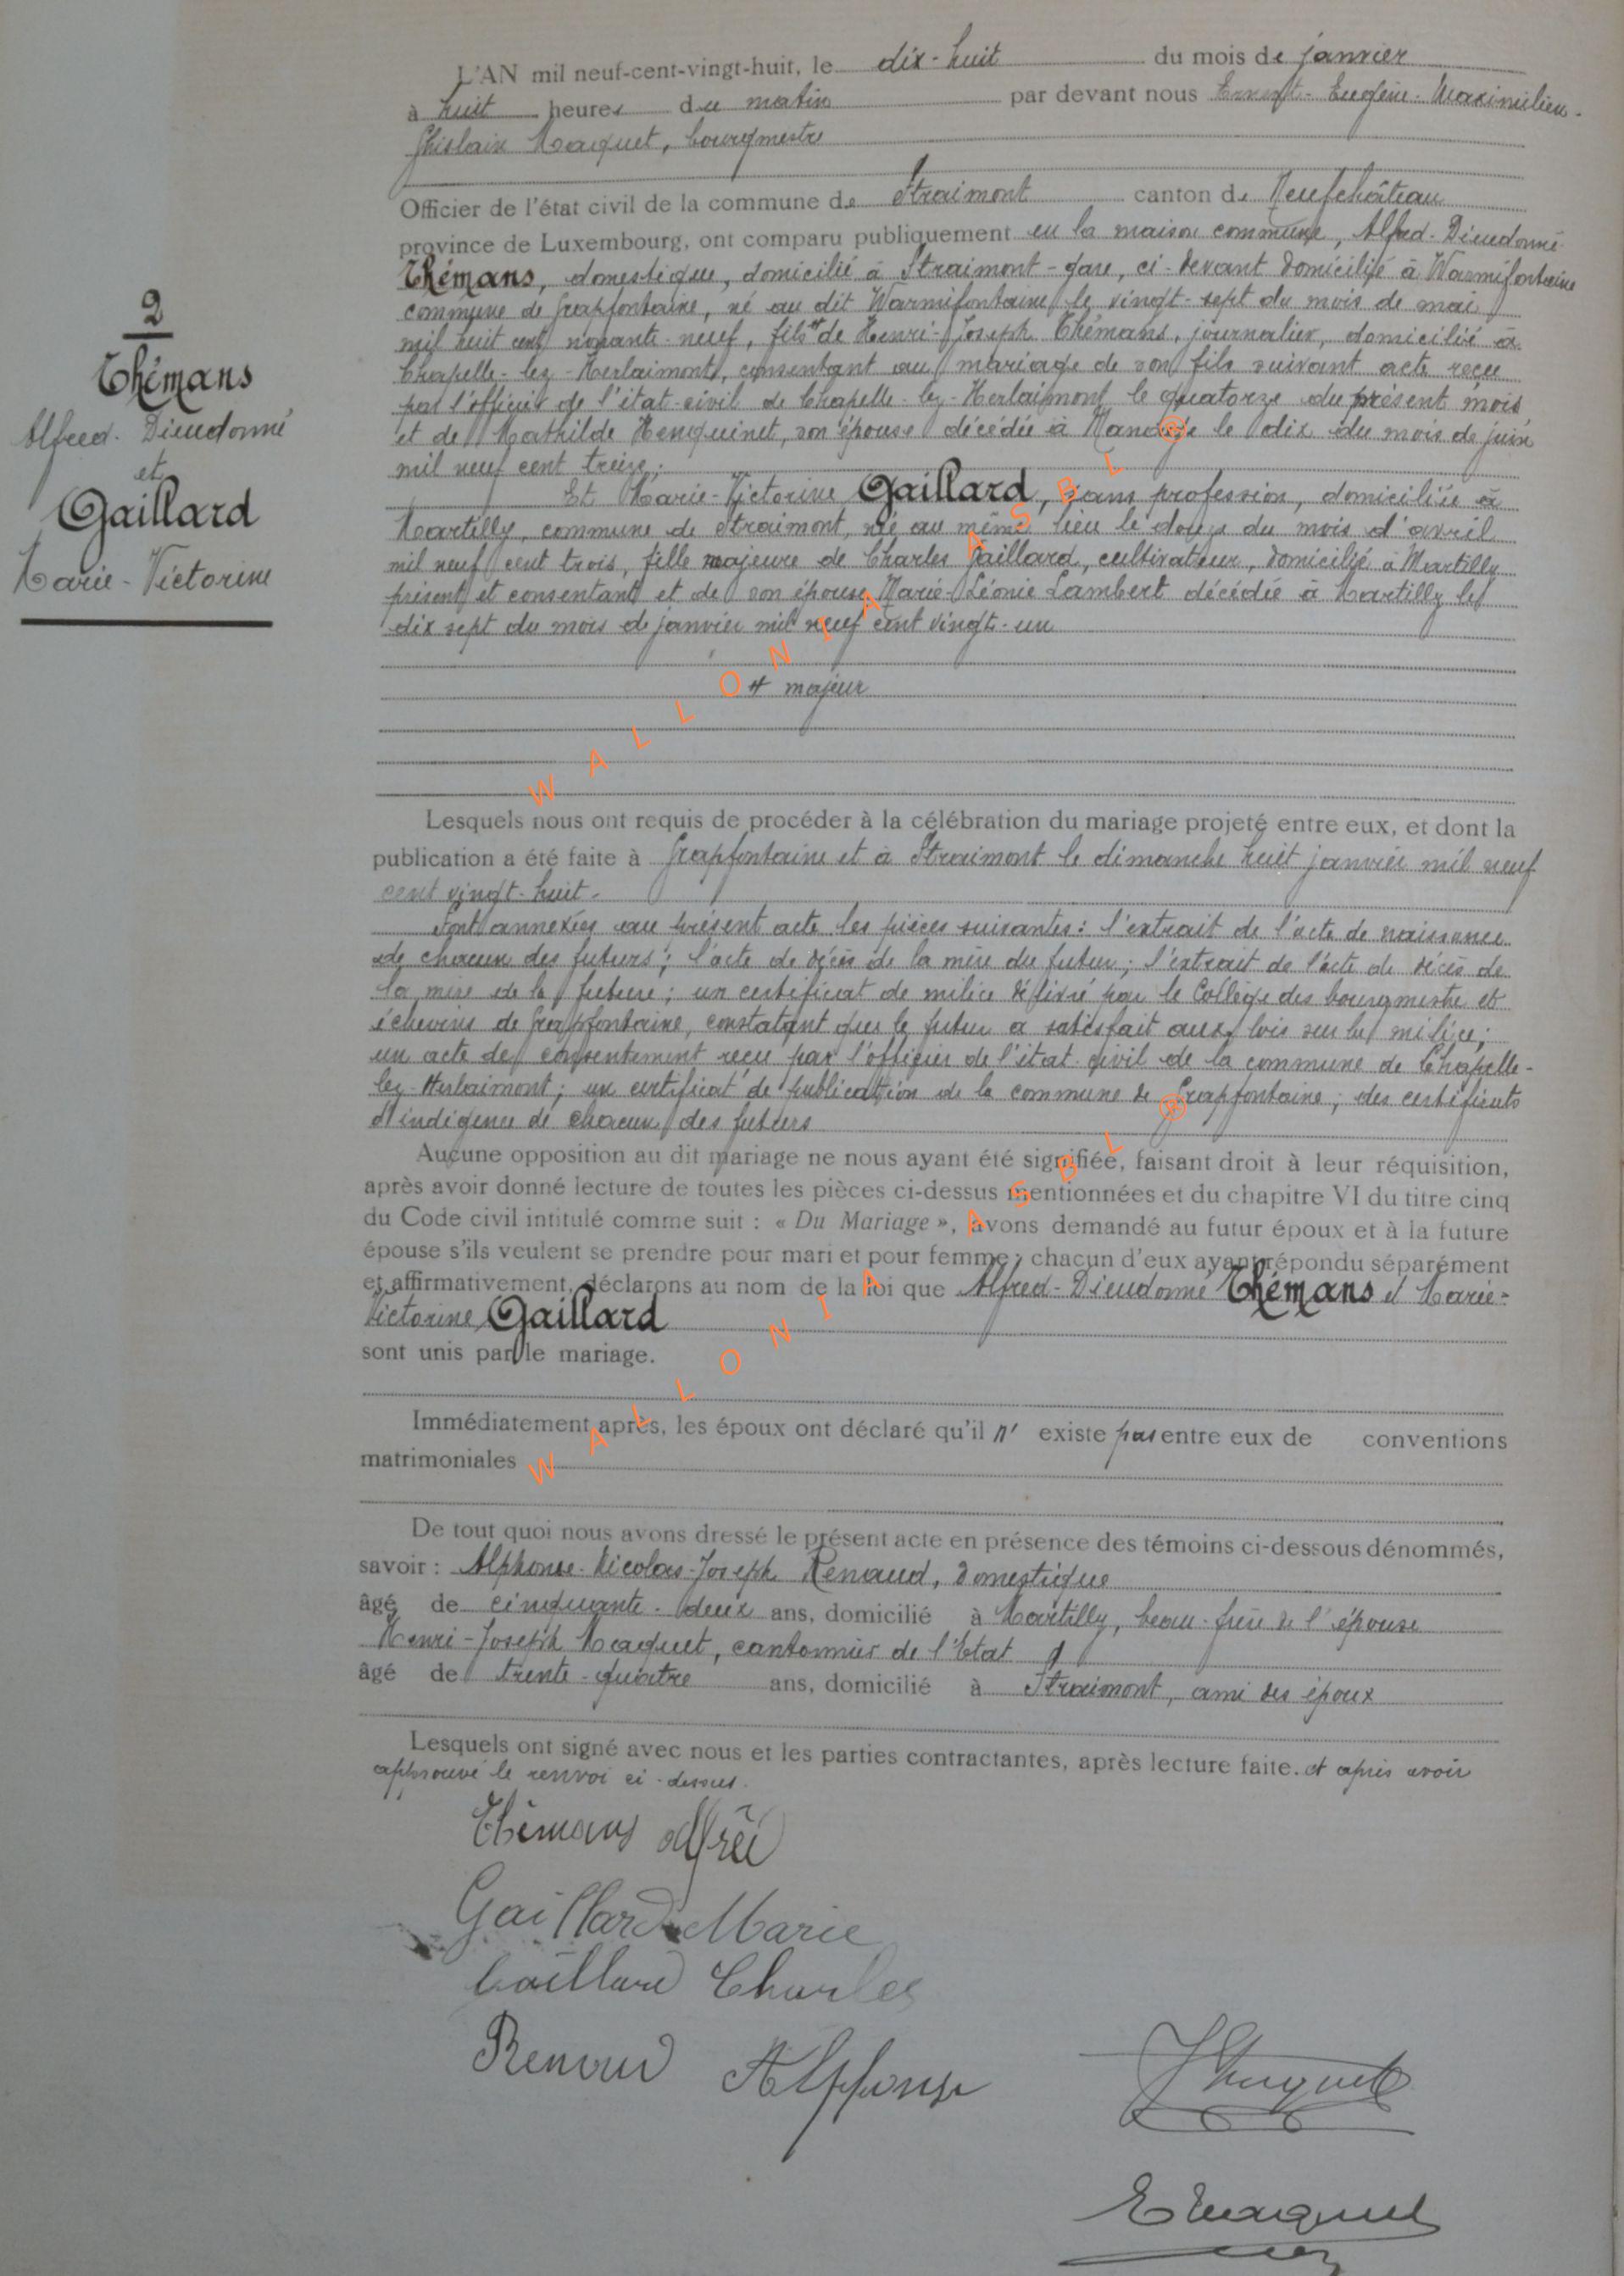 2
Thémans
Alfred-Dieudonné
et
Gaillard
Marie-Victorine
L'AN mil neuf-cent-vingt-huit, le dix-huit du mois de janvier
à huit heures du matin par devant nous Ernest-Eugène-Maximilien-
Ghislain Maquet, bourgmestre
Officier de l'état civil de la commune de Straimont canton de Neufchâteau
province de Luxembourg, ont comparu publiquement en la maison commune, Alfred-Dieudonné
Thémans, domestique, domicilié à Straimont-gare, ci-devant domicilié à Warmifontaine
commune de Grapfontaine, né au dit Warmifontaine le vingt-sept du mois de mai
mil huit cent nonante-neuf, fils # de Henri-Joseph Thémans, journalier, domicilié à
Chapelle-lez-Herlaimont, consentant au mariage de son fils suivant acte reçu
par l'officier de l'état-civil de Chapelle-lez-Herlaimont le quatorze du présent mois
et de Mathilde Henquinet, son épouse décédée à Manage le dix du mois de juin
mil neuf cent treize;
Et Marie-Victorine Gaillard, sans profession, domiciliée à
Martilly, commune de Straimont, née au même lieu le douze du mois d'avril
mil neuf cent trois, fille majeure de Charles Gaillard, cultivateur, domicilié à Martilly
présent et consentant et de son épouse Marie-Léonie Lambert décédée à Martilly le
dix sept du mois de janvier mil neuf cent vingt-un
# majeur
WALLONIA ASBL ®
Lesquels nous ont requis de procéder à la célébration du mariage projeté entre eux, et dont la
publication a été faite à Grapfontaine et à Straimont le dimanche huit janvier mil neuf
cent vingt-huit.
Sont annexées au présent acte les pièces suivantes: l'extrait de l'acte de naissance
de chacun des futurs; l'acte de décès de la mère du futur; l'extrait de l'acte de décès de
la mère de la future; un certificat de milice délivré par le Collège des bourgmestre et
échevins de Grapfontaine, constatant que le futur a satisfait aux lois sur la milice;
un acte de consentement reçu par l'officier de l'état-civil de la commune de Chapelle-
lez-Herlaimont; un certificat de publication de la commune de Grapfontaine; des certificats
d'indigence de chacun des futurs
Aucune opposition au dit mariage ne nous ayant été signifiée, faisant droit à leur réquisition,
après avoir donné lecture de toutes les pièces ci-dessus mentionnées et du chapitre VI du titre cinq
du Code civil intitulé comme suit : « Du Mariage », avons demandé au futur époux et à la future
épouse s'ils veulent se prendre pour mari et pour femme; chacun d'eux ayant répondu séparément
et affirmativement, déclarons au nom de la loi que Alfred-Dieudonné Thémans et Marie-
Victorine Gaillard
sont unis par le mariage.
WALLONIA ASBL ®
Immédiatement après, les époux ont déclaré qu'il n' existe pas entre eux de conventions
matrimoniales
De tout quoi nous avons dressé le présent acte en présence des témoins ci-dessous dénommés,
savoir : Alphonse-Nicolas-Joseph Renaud, domestique
âgé de cinquante-deux ans, domicilié à Martilly, beau-frère de l'épouse
Henri-Joseph Maquet, cantonnier de l'Etat
âgé de trente-quatre ans, domicilié à Straimont, ami des époux
Lesquels ont signé avec nous et les parties contractantes, après lecture faite. et après avoir
approuvé le renvoi ci-dessus.
Thémans Alfred
Gaillard Marie
Gaillard Charles
Renaud Alphonse
HMaquet
EMaquet